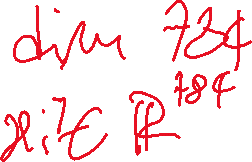 dim 784
xi ∈ ℝ^784